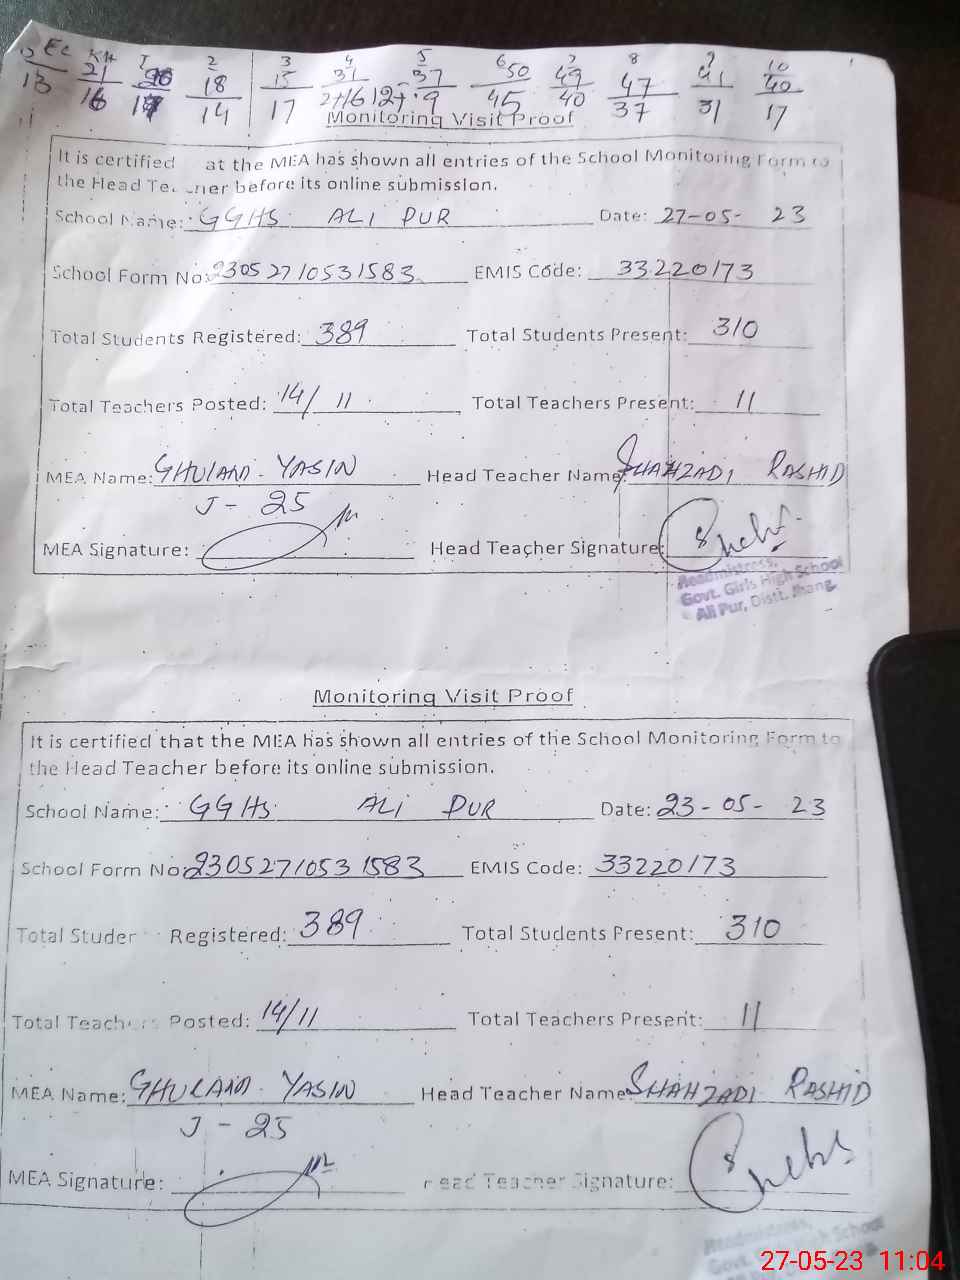 ECE KH 1 2 3 4 5 6 7 8 9 10
21 18 15 31 37 50 49 47 41 40
13 16 14 17 2+16 12+ 9 45 40 37 31 17
Monitoring Visit Proof
It is certified at the MEA has shown all entries of the School Monitoring Form to
the Head Te ner before its online submission.
School Name: GGHS ALI PUR Date: 27-05- 23
School Form No: 23052710531583 EMIS Code: 33220173
Total Students Registered: 389 Total Students Present: 310
Total Teachers Posted: 14/ 11 Total Teachers Present: 11
MEA Name: GHULAM YASIN Head Teacher Name: SHAHZADI RASHID
J - 25
MEA Signature: Head Teacher Signature:
Headmistress,
Govt. Girls High School
Ali Pur, Distt. Jhang.
Monitoring Visit Proof
It is certified that the MEA has shown all entries of the School Monitoring Form to
the Head Teacher before its online submission.
School Name: GGHS ALI PUR Date: 23-05- 23
School Form No: 23052710531583 EMIS Code: 33220173
Total Studer Registered: 389 Total Students Present: 310
Total Teachers Posted: 14/11 Total Teachers Present: 11
MEA Name: GHULAM YASIN Head Teacher Name: SHAHZADI RASHID
J - 25
MEA Signature: Head Teacher Signature:
Headmistress,
Govt. High School
27-05-23 11:04